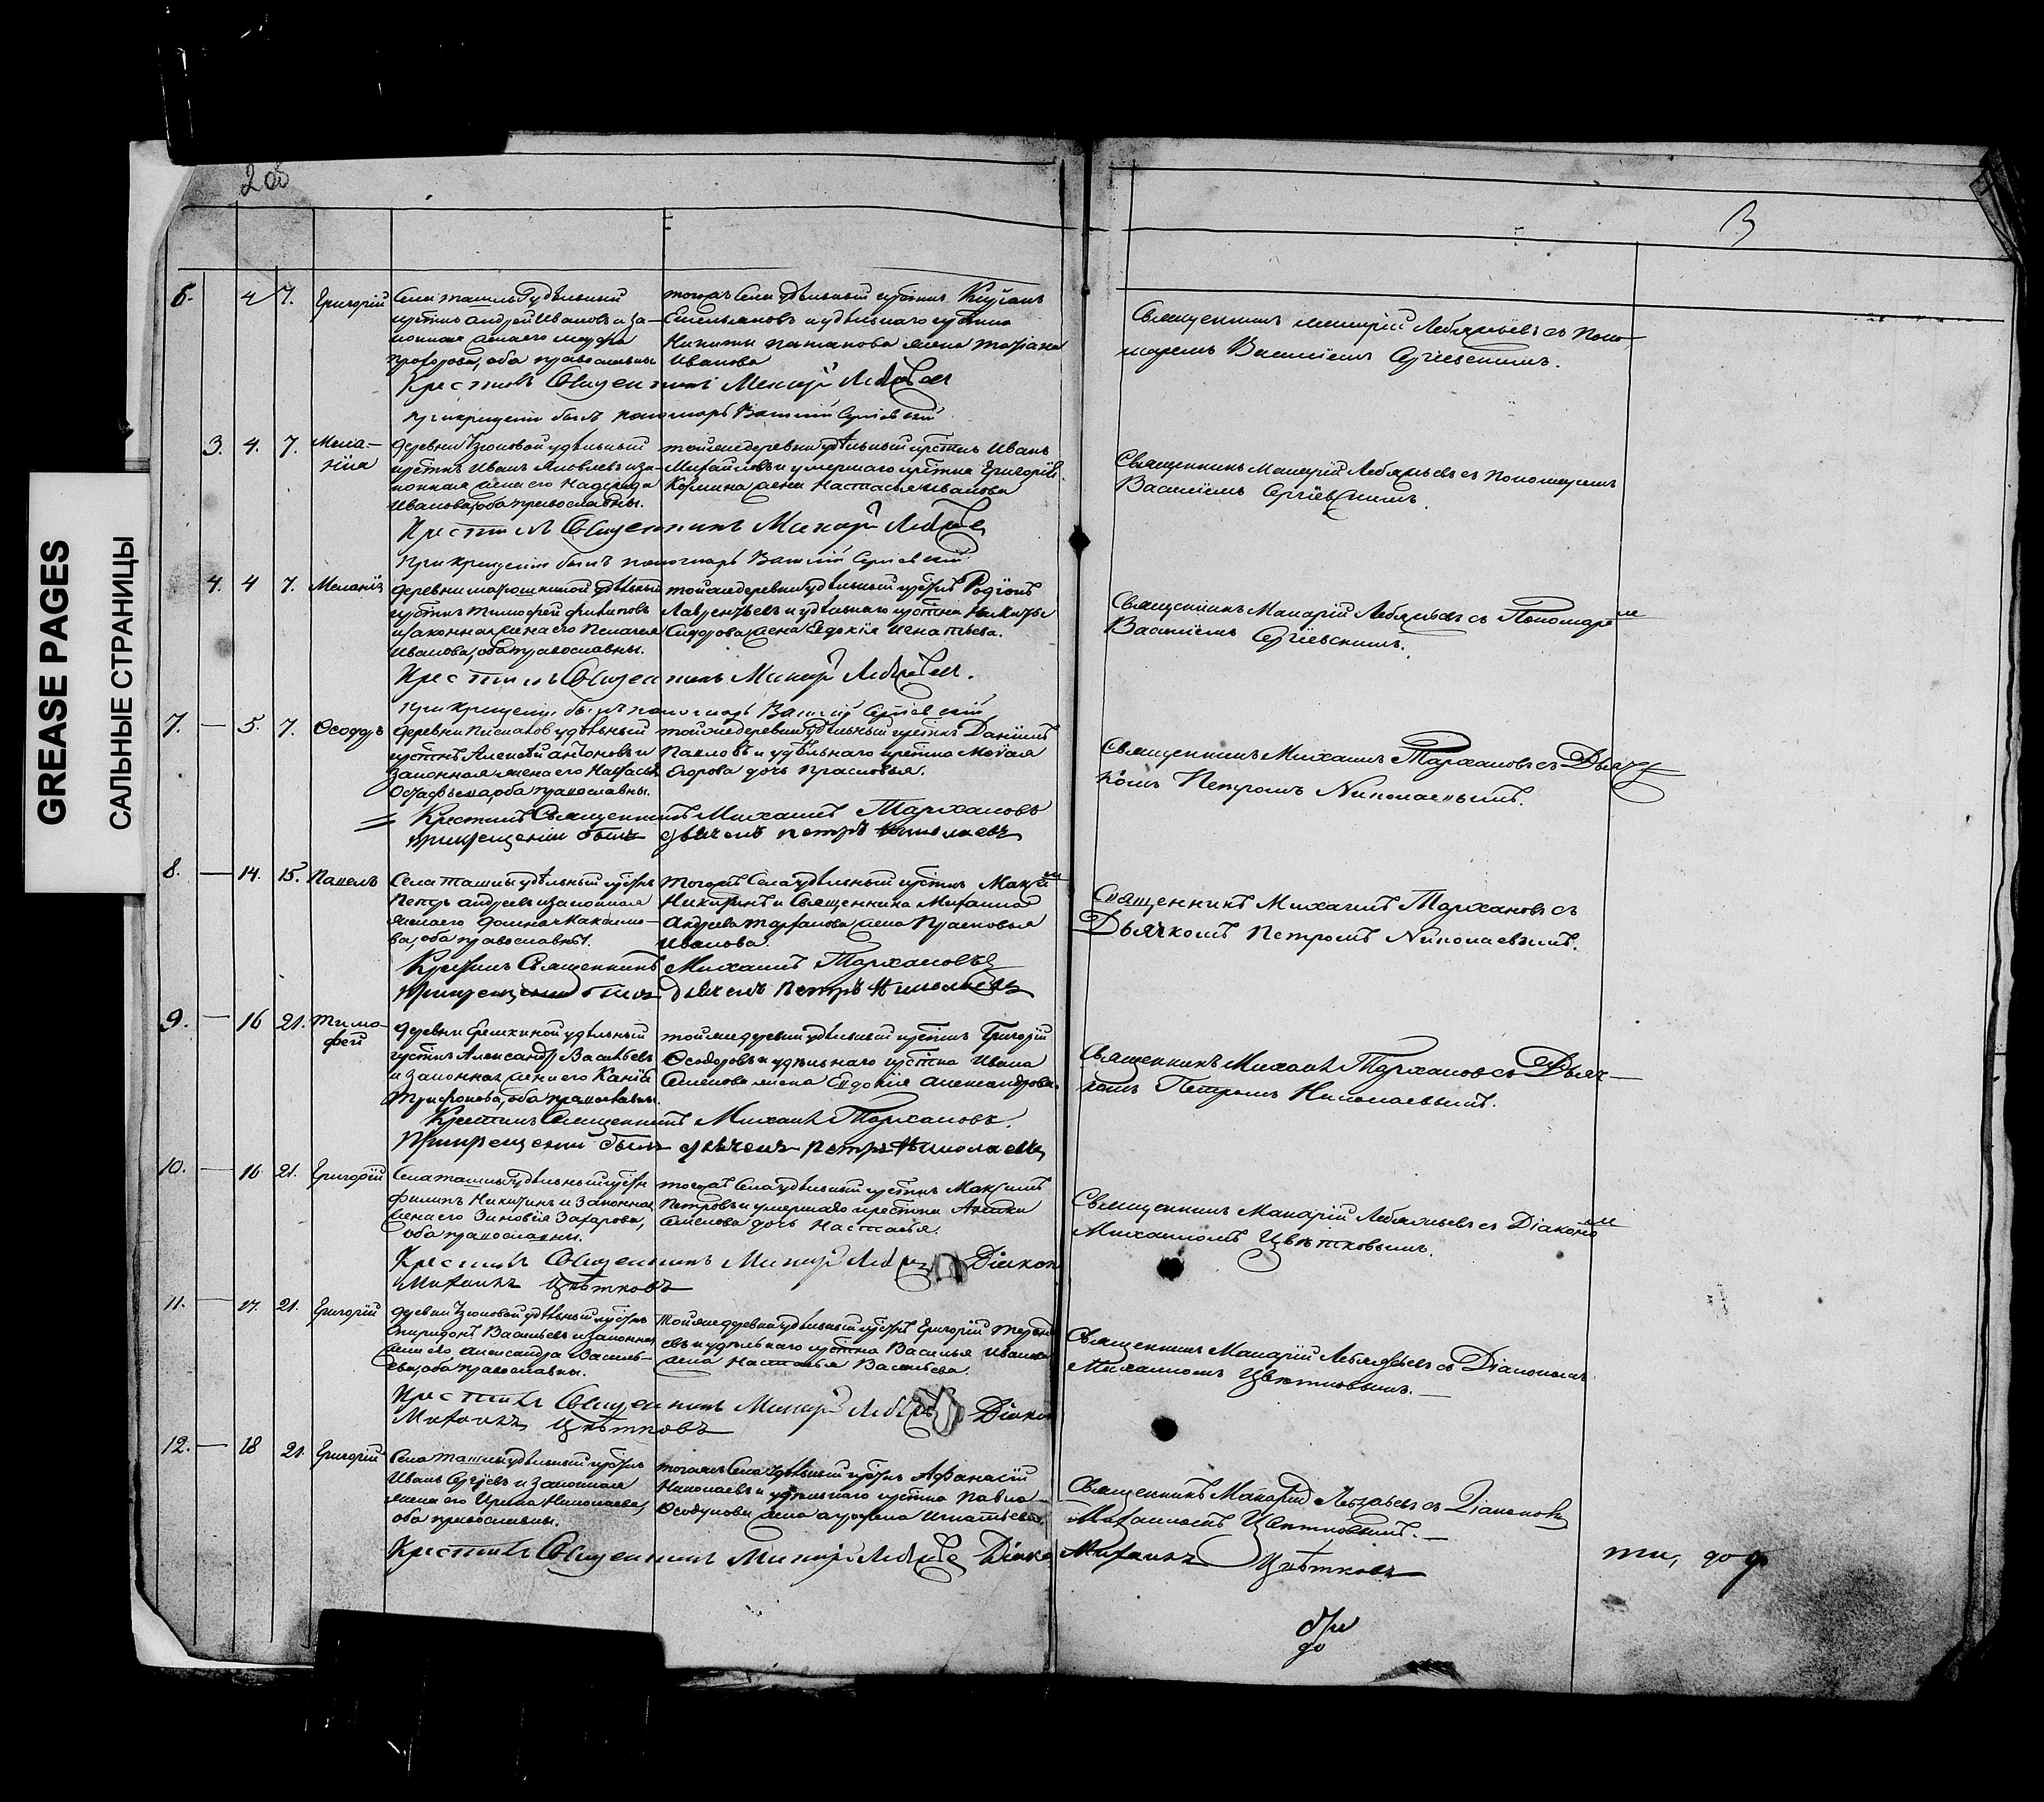 GREASE PAGES
САЛЬНЫЕ СТРАНИЦЫ
2 об
3
6. 4 7. Григорій
Села Ташлы удѣльный
крстнъ Андрей Ивановъ и за-
конная жена его
Прохорова, оба православны
тогожъ Села удѣльный крстнъ
Емельяновъ и удѣльнаго крстна
Никиты жена Татіана
Иванова
Священникъ Макарій Лебяжьевъ съ Поно-
маремъ Василіемъ Сергіевскимъ.
Крестилъ Священникъ Макарій
при крещеніи былъ пономарь Василій Сергіевскій
3. 4. 7. Мела-
нія
деревни Узюковой удѣльный
крстнъ Иванъ Яковлевъ и за-
конная жена его Надежда
Иванова, оба православны.
тойже деревни удѣльный крстнъ Иванъ
Михайловъ и умершаго крстна Григорія
жена Настасья Иванова
Священникъ Макарій Лебяжьевъ съ Пономаремъ
Василіемъ Сергіевскимъ.
Крестилъ Священникъ Макарій
При крещеніи былъ пономарь Василій Сергіевскій
4. 4 7. Меланія
деревни удѣльный
крстнъ Тимофей Филиповъ
и законная жена его Пелагея
Иванова, оба православны.
тойже деревни удѣльный крстнъ Родіонъ
Лаврентьевъ и удѣльнаго крстна Никиты
Сидорова жена Евдокія Игнатьева.
Священникъ Макарій Лебяжьевъ съ Пономаремъ
Василіемъ Сергіевскимъ.
Крестилъ Священникъ Макарій
при крещеніи былъ пономарь Василій Сергіевскій
7. — 5. 7. Ѳеодоръ
деревни удѣльный
крстнъ Алексѣй Антоновъ и
законная жена его Настасья
оба православны.
тойже деревни удѣльный крстнъ Даніилъ
Павловъ и удѣльнаго крстна
дочь Прасковья.
Священникъ Михаилъ Тархановъ съ Дьяч-
комъ Петромъ Николаевымъ.
Крестилъ Священникъ Михаилъ Тархановъ
при крещеніи былъ дьячекъ Петръ Николаевъ
8. — 14. 15. Павелъ
Села Ташлы удѣльный крстнъ
Петръ Андреевъ и законная
жена его Домна Максимо-
ва, оба православны.
тогожъ Села удѣльный крстнъ Максимъ
Никитинъ и Священника Михаила
Андреева Тарханова жена Прасковья
Иванова.
Священникъ Михаилъ Тархановъ съ
Дьячкомъ Петромъ Николаевымъ.
Крестилъ Священникъ Михаилъ Тархановъ
При крещеніи былъ дьячекъ Петръ Николаевъ
9. — 16 21. Тимо-
фей
деревни удѣльный
крстнъ Александръ Васильевъ
и законная жена его
Трифонова, оба православны.
тойже деревни удѣльный крстнъ Григорій
Ѳеодоровъ и удѣльнаго крстна Ивана
Семенова жена Евдокія Александрова.
Священникъ Михаилъ Тархановъ съ Дьяч-
комъ Петромъ Николаевымъ.
Крестилъ Священникъ Михаилъ Тархановъ.
При крещеніи былъ дьячекъ Петръ Николаевъ
10. — 16 21. Григорій
Села Ташлы удѣльный крстнъ
Филипъ Никитинъ и законная
жена его Зиновія Захарова,
оба православны.
тогожъ Села удѣльный крстнъ Максимъ
Петровъ и умершаго крестна
Семенова дочь Настасья.
Священникъ Макарій Лебяжьевъ съ Діакономъ
Михаиломъ Цвѣтковымъ.
Крестилъ Священникъ Макарій Діакон
Михаилъ Цвѣтковъ
11. — 17. 21. Григорій
деревни Узюковой удѣльный крстнъ
Спиридонъ Васильевъ и законная
жена его Александра Василь-
ева, оба православны.
тойже деревни удѣльный крстнъ Григорій
евъ и удѣльнаго крстна Василья Иванова
жена Настасья Васильева.
Священникъ Макарій Лебяжьевъ съ Діакономъ
Михаиломъ Цвѣтковымъ. —
Крестилъ Священникъ Макарій Діакон
Михаилъ Цвѣтковъ
12. — 18 21. Григорій
Села Ташлы удѣльный крстнъ
Иванъ Сергѣевъ и законная
жена его Ирина Николаева,
оба православны.
тогожъ Села удѣльный крстнъ Афанасій
Николаевъ и удѣльнаго крстна Павла
жена Игнатьева.
Священникъ Макарій Лебяжьевъ съ Діакономъ
Михаиломъ Цвѣтковымъ. —
Крестилъ Священникъ Макарій Діакон Михаилъ Цвѣтковъ